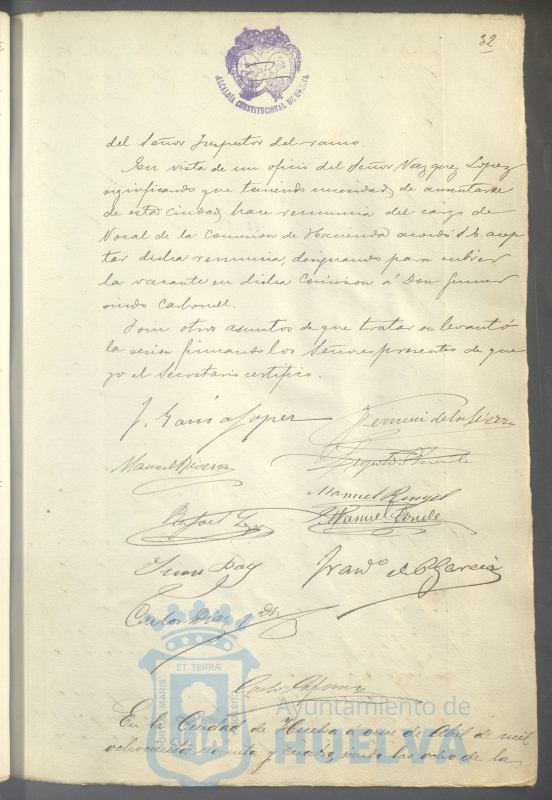 32
ALCALDÍA CONSTITUCIONAL DE HUELVA
del Señor Inspector del ramo.
En vista de un oficio del Señor Vazquez Lopez
significando que teniendo necesidad de ausentarse
de esta ciudad, hace renuncia del cargo de
Vocal de la Comision de Hacienda acordó S. E. acep
tar dicha renuncia, designando para cubrir
la vacante en dicha Comision á Don Gumer
sindo Carbonell.
Y sin otros asuntos de que tratar se levantó
la sesion firmando los Señores presentes de que
yo el Secretario certifico.
J. Garcia Lopez
Fermin de la Sierra
Manuel Rivera
Manuel Rengel
Rafael
Manuel Conde
Juan
Franco de P. Garcia
Carlos Diaz
PORTUS MARIS ET TERRÆ CUSTODIA
Ayuntamiento de
HUELVA
En la Ciudad de Huelva á once de Abril de mil
ochocientos noventa y cuatro, siendo las ocho de la